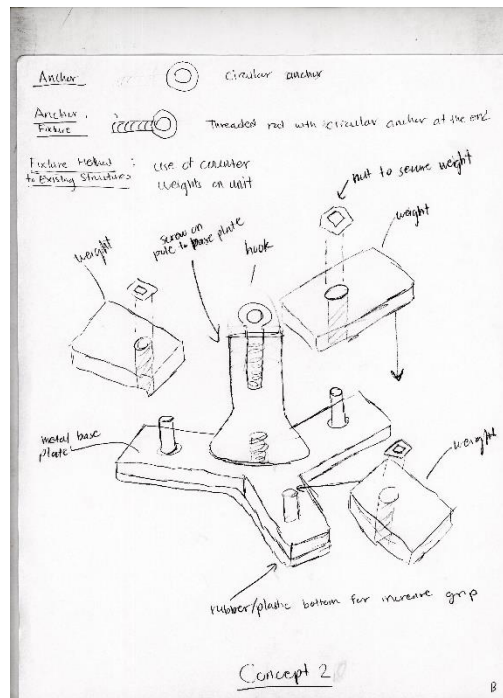 Anchor
Circular anchor
Anchor
Fixture
Threaded rod with circular anchor at the end
Fixture Method :
to Existing Structures
use of counter
weights on unit
nut to secure weight
weight
screw on
pole to base plate
hook
weight
metal base
plate
weight
rubber/plastic bottom for increase grip
Concept 2
B